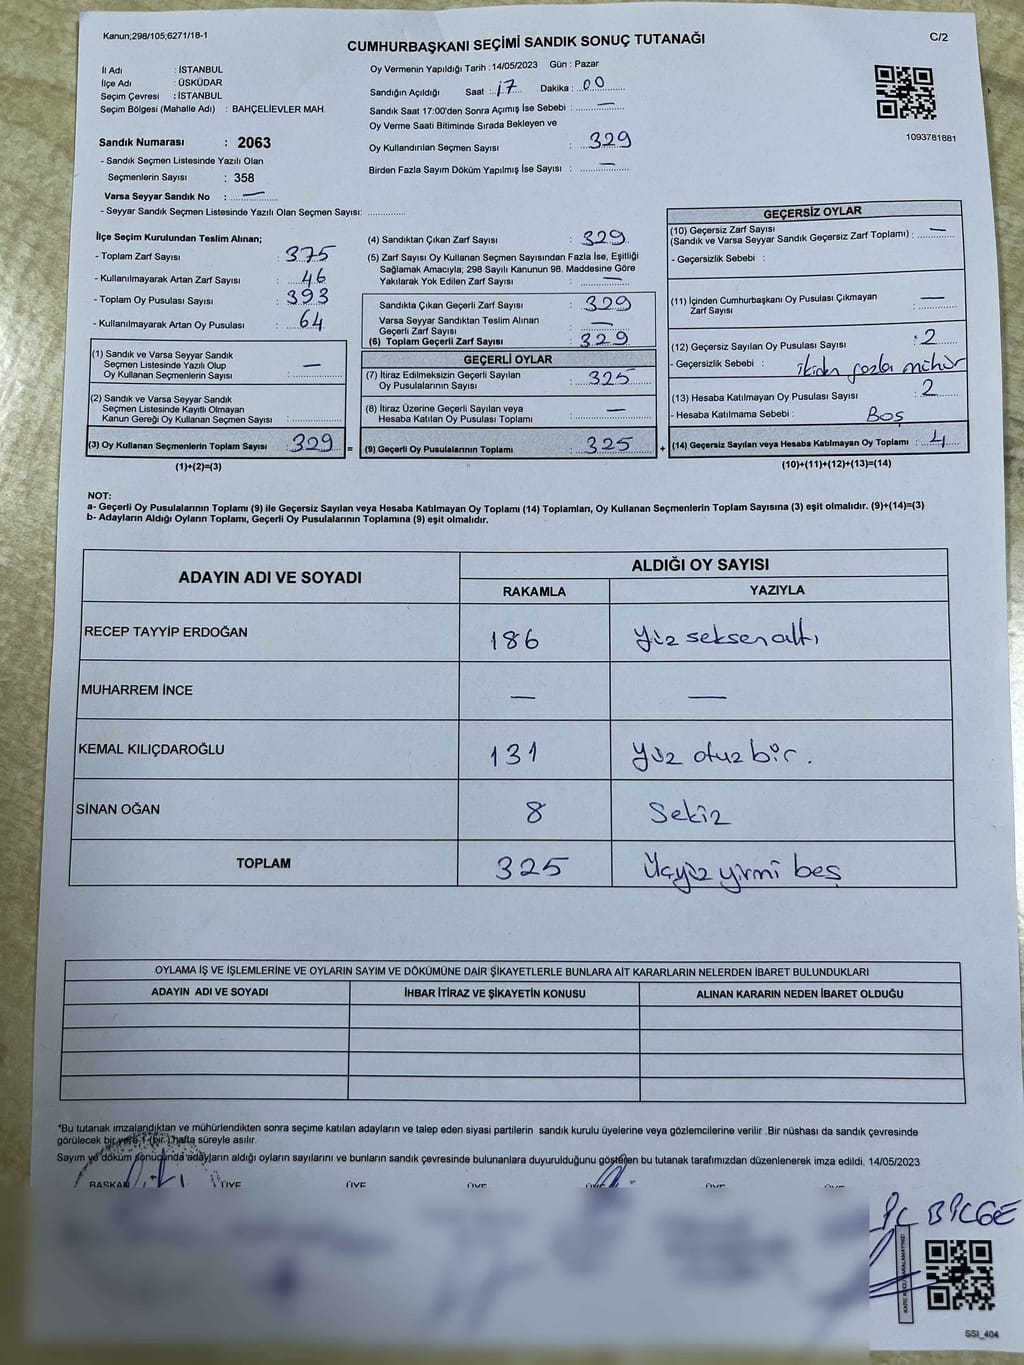 Kanun;298/105;6271/18-1
C/2
CUMHURBAŞKANI SEÇİMİ SANDIK SONUÇ TUTANAĞI
İl Adı : İSTANBUL
İlçe Adı : ÜSKÜDAR
Seçim Çevresi : İSTANBUL
Seçim Bölgesi (Mahalle Adı) : BAHÇELİEVLER MAH.
Sandık Numarası : 2063
- Sandık Seçmen Listesinde Yazılı Olan
Seçmenlerin Sayısı : 358
Varsa Seyyar Sandık No : —
- Seyyar Sandık Seçmen Listesinde Yazılı Olan Seçmen Sayısı: ............
Oy Vermenin Yapıldığı Tarih : 14/05/2023 Gün : Pazar
Sandığın Açıldığı Saat : 17 Dakika : 00
Sandık Saat 17:00'den Sonra Açımış İse Sebebi : —
Oy Verme Saati Bitiminde Sırada Bekleyen ve
Oy Kullandırılan Seçmen Sayısı : 329
Birden Fazla Sayım Döküm Yapılmış İse Sayısı : —
1093781881
İlçe Seçim Kurulundan Teslim Alınan;
- Toplam Zarf Sayısı : 375
- Kullanılmayarak Artan Zarf Sayısı : 46
- Toplam Oy Pusulası Sayısı : 393
- Kullanılmayarak Artan Oy Pusulası : 64
(1) Sandık ve Varsa Seyyar Sandık
Seçmen Listesinde Yazılı Olup
Oy Kullanan Seçmenlerin Sayısı : —
(2) Sandık ve Varsa Seyyar Sandık
Seçmen Listesinde Kayıtlı Olmayan
Kanun Gereği Oy Kullanan Seçmen Sayısı : ............
(3) Oy Kullanan Seçmenlerin Toplam Sayısı : 329 =
(1)+(2)=(3)
(4) Sandıktan Çıkan Zarf Sayısı : 329
(5) Zarf Sayısı Oy Kullanan Seçmen Sayısından Fazla İse, Eşitliği
Sağlamak Amacıyla; 298 Sayılı Kanunun 98. Maddesine Göre
Yakılarak Yok Edilen Zarf Sayısı : —
Sandıkta Çıkan Geçerli Zarf Sayısı : 329
Varsa Seyyar Sandıktan Teslim Alınan
Geçerli Zarf Sayısı : —
(6) Toplam Geçerli Zarf Sayısı : 329
GEÇERLİ OYLAR
(7) İtiraz Edilmeksizin Geçerli Sayılan
Oy Pusulalarının Sayısı : 325
(8) İtiraz Üzerine Geçerli Sayılan veya
Hesaba Katılan Oy Pusulası Toplamı : —
(9) Geçerli Oy Pusulalarının Toplamı : 325 +
GEÇERSİZ OYLAR
(10) Geçersiz Zarf Sayısı
(Sandık ve Varsa Seyyar Sandık Geçersiz Zarf Toplamı) : —
- Geçersizlik Sebebi :
(11) İçinden Cumhurbaşkanı Oy Pusulası Çıkmayan
Zarf Sayısı : —
(12) Geçersiz Sayılan Oy Pusulası Sayısı : 2
- Geçersizlik Sebebi : ikiden fazla mühür
(13) Hesaba Katılmayan Oy Pusulası Sayısı : 2
- Hesaba Katılmama Sebebi : Boş
(14) Geçersiz Sayılan veya Hesaba Katılmayan Oy Toplamı : 4
(10)+(11)+(12)+(13)=(14)
NOT:
a- Geçerli Oy Pusulalarının Toplamı (9) ile Geçersiz Sayılan veya Hesaba Katılmayan Oy Toplamı (14) Toplamları, Oy Kullanan Seçmenlerin Toplam Sayısına (3) eşit olmalıdır. (9)+(14)=(3)
b- Adayların Aldığı Oyların Toplamı, Geçerli Oy Pusulalarının Toplamına (9) eşit olmalıdır.
ADAYIN ADI VE SOYADI ALDIĞI OY SAYISI
RAKAMLA YAZIYLA
RECEP TAYYİP ERDOĞAN 186 Yüz seksen altı
MUHARREM İNCE — —
KEMAL KILIÇDAROĞLU 131 Yüz otuz bir.
SİNAN OĞAN 8 Sekiz
TOPLAM 325 Üçyüz yirmi beş
OYLAMA İŞ VE İŞLEMLERİNE VE OYLARIN SAYIM VE DÖKÜMÜNE DAİR ŞİKAYETLERLE BUNLARA AİT KARARLARIN NELERDEN İBARET BULUNDUKLARI
ADAYIN ADI VE SOYADI İHBAR İTİRAZ VE ŞİKAYETİN KONUSU ALINAN KARARIN NEDEN İBARET OLDUĞU
*Bu tutanak imzalandıktan ve mühürlendikten sonra seçime katılan adayların ve talep eden siyasi partilerin sandık kurulu üyelerine veya gözlemcilerine verilir .Bir nüshası da sandık çevresinde
görülecek bir yere 1 (bir ) hafta süreyle asılır.
Sayım ve döküm sonucunda adayların aldığı oyların sayılarını ve bunların sandık çevresinde bulunanlara duyurulduğunu gösteren bu tutanak tarafımızdan düzenlenerek imza edildi. 14/05/2023
BAŞKAN ÜYE ÜYE ÜYE ÜYE ÜYE ÜYE
BİLGE
SSI_404